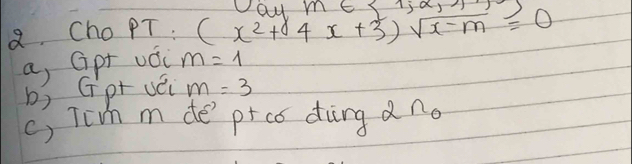 Vậy m ∈ { 1; 2,
2. Cho PT: ( x² + 4 x + 3 ) √x - m = 0
a, Gpt với m = 1
b, Gpt với m = 3
c, Tìm m để pt có đúng 2 n₀